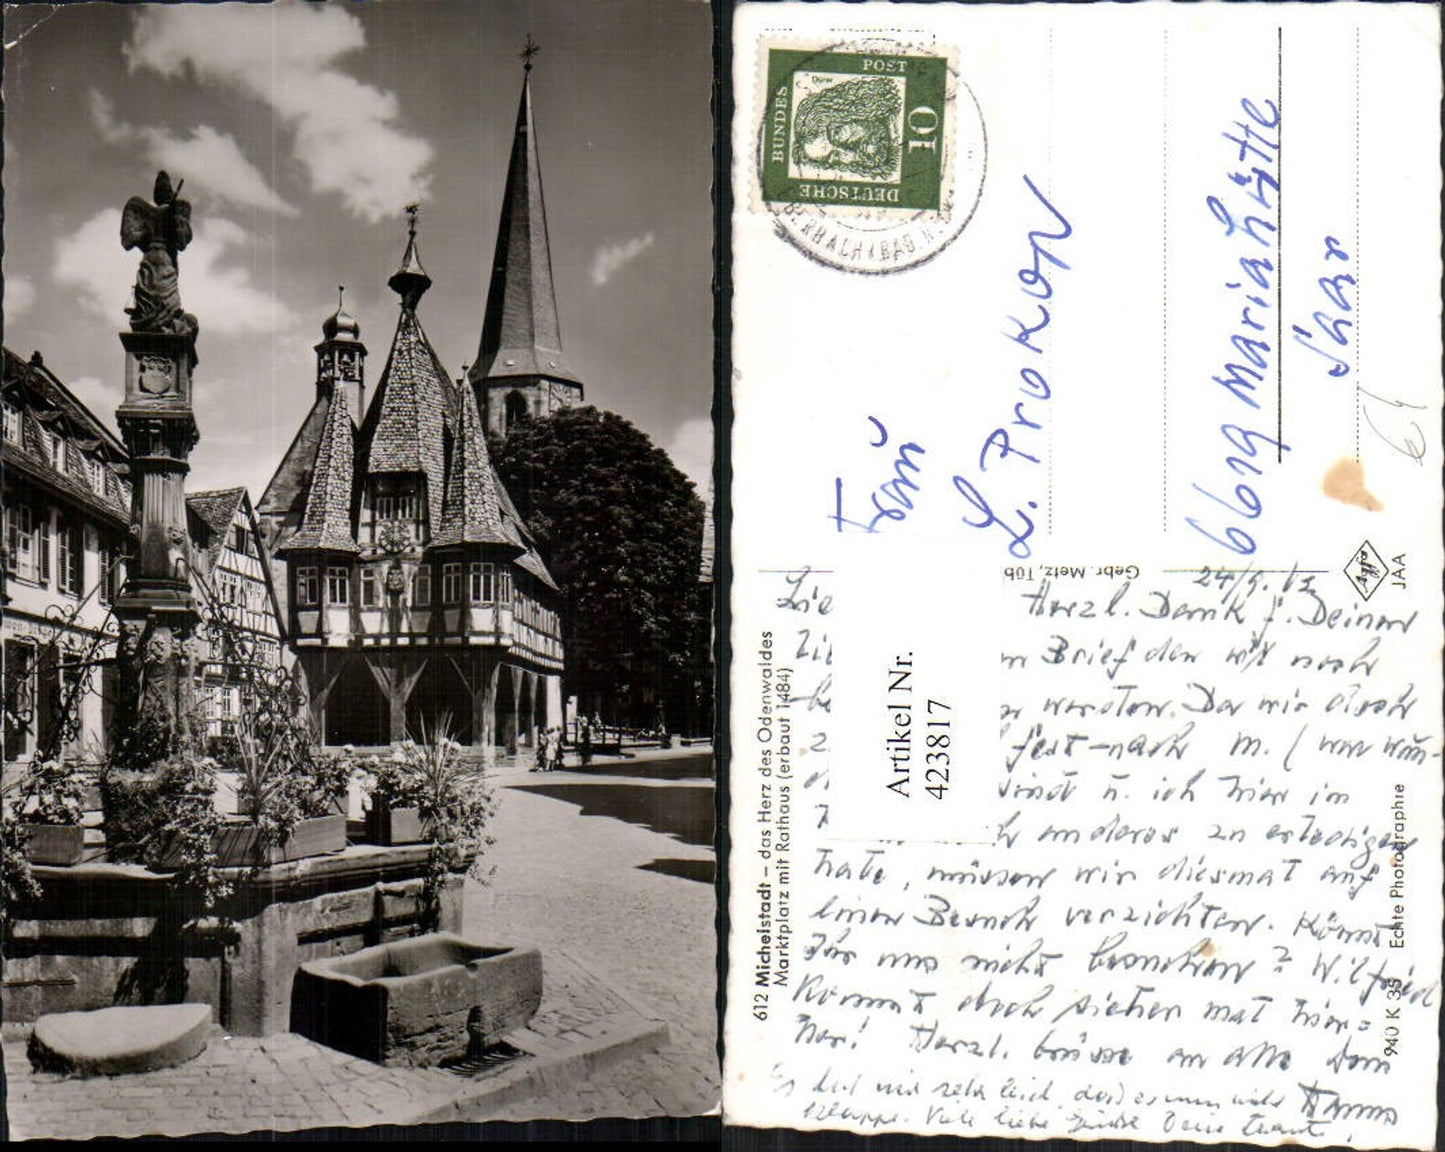 DEUTSCHE
BUNDES
POST
10
Dürer
Frau
L. Prokop
6619 Mariahütte
Saar
Gebr. Metz, Tüb
Agfa
JAA
612 Michelstadt – das Herz des Odenwaldes
Marktplatz mit Rathaus (erbaut 1484)
Echte Photographie
940 K 35
Artikel Nr.
423817
Herzl. Dank f. Deinen
Brief den wir noch
werden. Da wir doch
fest nach M.
sind u. ich hier im
anderes zu erledigen
habe, müssen wir diesmal auf
einen Besuch verzichten. Könnt
Ihr uns nicht besuchen? Wilfried
kommt doch sicher mal hier=
her! Herzl. Grüsse an alle Dein
Es tut mir sehr leid, dass es nun nicht Hanna
klappt. Viele liebe Grüße Deine